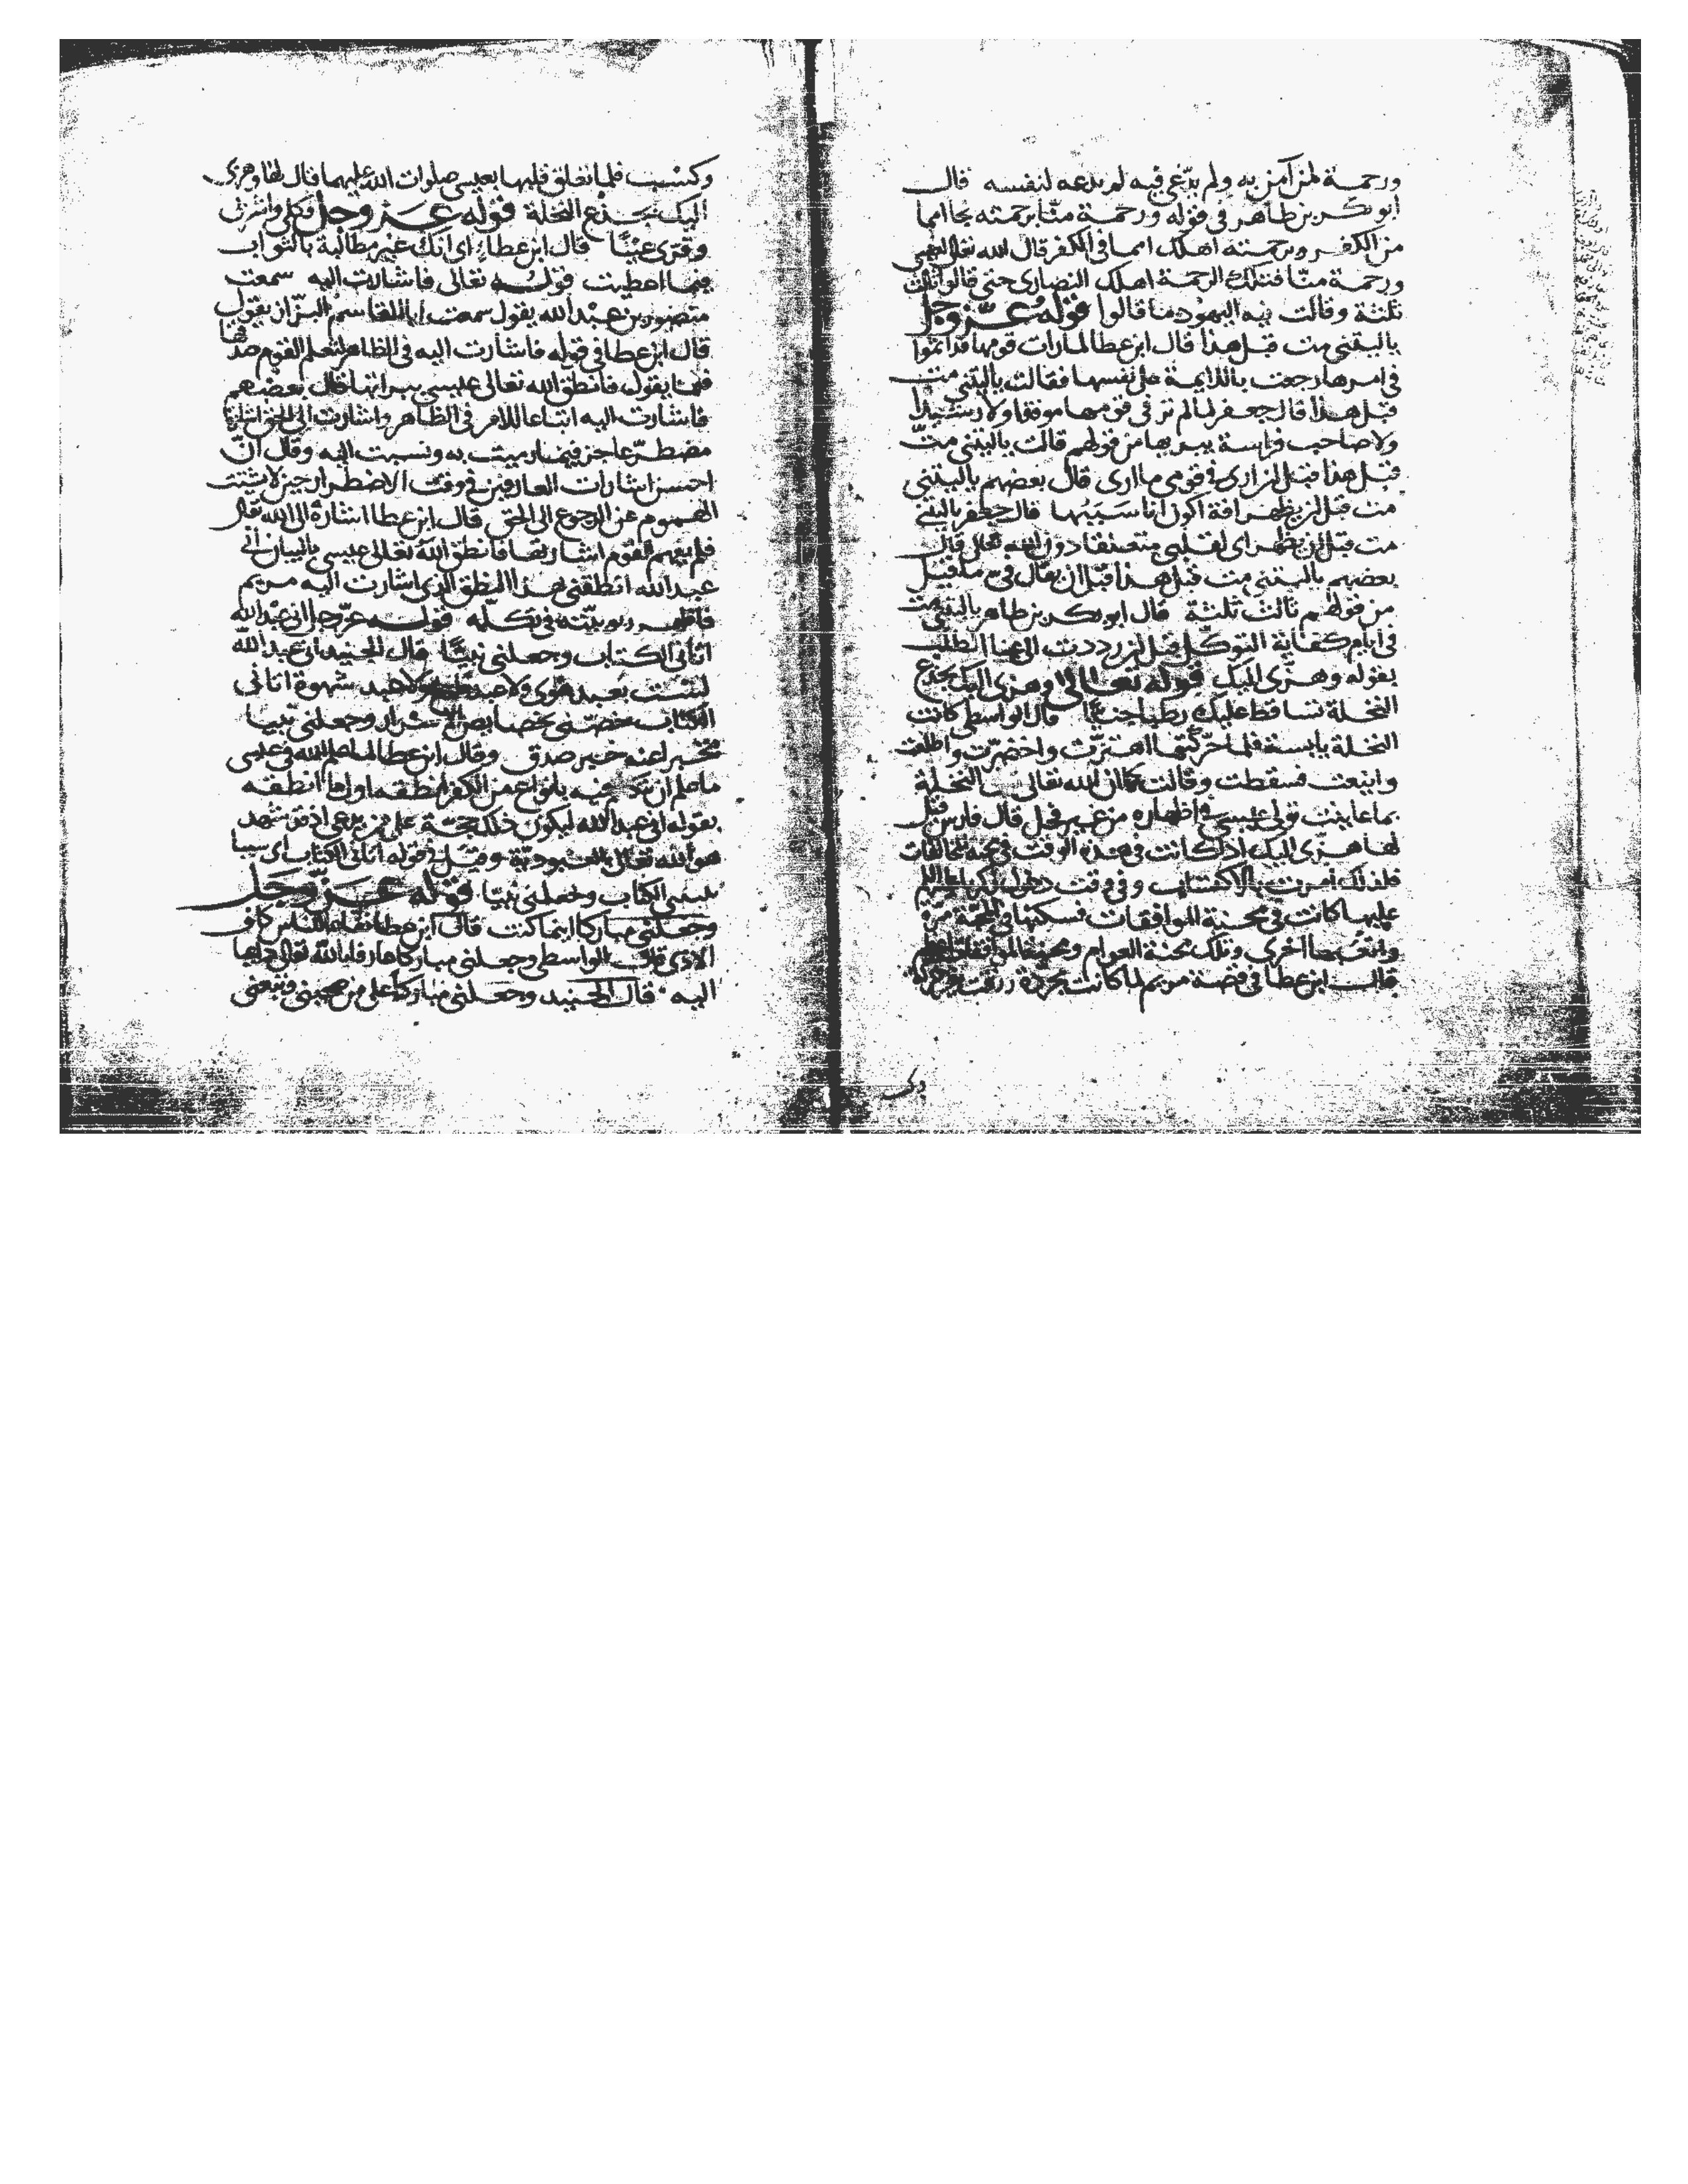 ورحمة لمن آمن به ولم يدّعى فيه لم يدعه لنفسه قال
ابو بكر بن طاهر فى قوله ورحمة منّا برحمته نجا امما
من الكفر وبرحمته اهلك امما فى الكفر قال الله تعالى
ورحمة منّا فتلك الرحمة اهلك النصارى حتى قالوا ثالث
ثلثة وقالت فيه اليهود ما قالوا قوله عزّ وجلّ
ياليتنى مت قبل هذا قال ابن عطا لما رات قومها قد
فى امرها رجعت باللايمة على نفسها فقالت ياليتنى مت
قبل هذا قال جعفر لما لم تر فى قومها موفقا ولا رشيدا
ولا صاحب فراسة يبريها من قولهم قالت ياليتنى متّ
قبل هذا قبل ان ارى فى قومى ما ارى قال بعضهم ياليتنى
مت قبل ان يظهر افة اكون انا سببها قال جعفر ياليتنى
مت قبل ان يظهر اى لقلبى متعلقا دون الله تعالى قال
بعضهم ياليتنى مت قبل هذا قبل ان يقال فىّ ما قيل
من قولهم ثالث ثلثة قال ابو بكر بن طاهر ياليتنى مت
فى ايام كفاية التوكل قبل ان رددت الى عنا الطلب
بقوله وهزّى اليك قوله تعالى وهزى اليك بجذع
النخلة تساقط عليك رطبا جنيّا قال الواسطى كانت
النخلة يابسة فلما حرّكتها اهتزّت واخضرّت واطلعت
واينعت فسقطت وقالت كان الله تعالى النخلة
بما عاينت تولى عيسى واظهاره من غير فحل قال فارس قيل
لها هزّى اليك اذ كانت فى هذه الوقت فى محنة المخالفات
فلذلك امرت بالاكتساب وفى وقت دخول زكريا
عليها كانت فى محنة الموافقات
واتعبها اخرى وتلك محنة العوام
قال ابن عطا فى قصة مريم لما كانت مجردة رزقت
وكسب فلما تعلق قلبها بعيسى صلوات الله عليهما قال لها وهزى
اليك بجذع النخلة قوله عزّ وجلّ فكلى واشربى
وقرى عينًا قال ابن عطاء اى انك غير مطالبة بالثواب
فيما اعطيت قوله تعالى فاشارت اليه سمعت
منصور بن عبد الله يقول سمعت ابا القاسم البزّاز يقول
قال ابن عطا فى قوله فاشارت اليه فى الظاهر لتعلم القوم
فيما يقول فانطق الله تعالى عيسى ببراتها قال بعضهم
فاشارت اليه اتباعا للامر فى الظاهر واشارت الى الحق
مضطرّ عاجز فيما رميت به ونسبت اليه وقال انّ
احسن اشارات العارفين فى وقت الاضطرار حين لا
الهموم عن الرجوع الى الحق قال ابن عطا اشارة الى الله قال
فلم يفهم القوم اشارتها فانطق الله تعالى عيسى بالبيان انى
عبد الله انطقنى هذا المنطق الذى اشارت اليه مريم
فاظهر ربوبيّته فى تكلّه قوله عزّ وجلّ انى عبد الله
اتانى الكتاب وجعلنى نبيّا قال الجنيد انى عبد الله
لست بعبد هوى ولا عبد شهوة اتانى
الكتاب خصّنى وجعلنى نبيا
مخبرا عنه خبر صدق وقال ابن عطا لما علم الله فى عيسى
ما علم ان يتكلم فيه بانواع من الكفر انطقه اول ما انطقه
بقوله انى عبد الله ليكون ذلك حجّة على من يدعى
هو الله تعالى بالعبوديّة وقيل فى قوله اتانى الكتاب اى
الكتاب وجعلنى نبيّا قوله عزّ وجلّ
وجعلنى مباركا اينما كنت قال ابن عطا
الاذى قال الواسطى وجعلنى مباركا
اليه قال الجنيد وجعلنى مباركا على من صحبنى وتبعنى